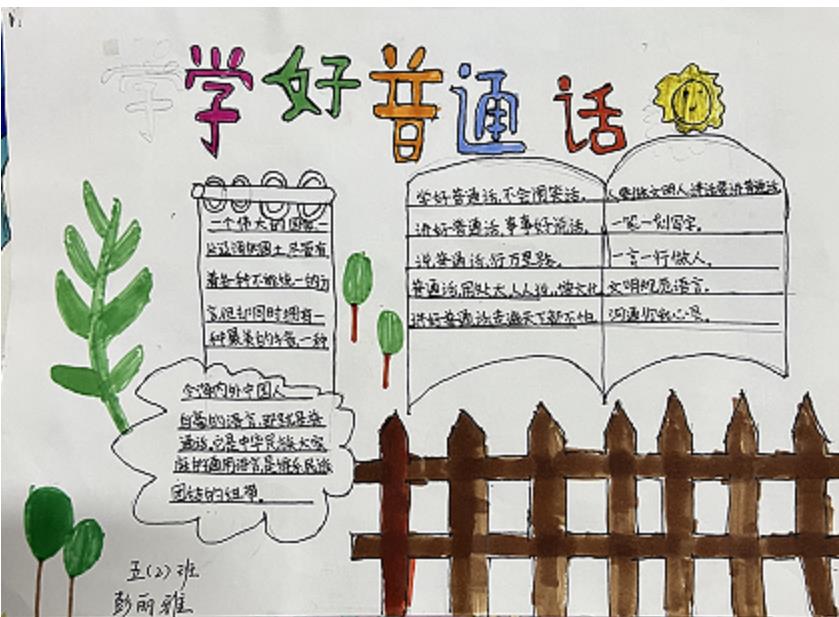 学好普通话
一个伟大的国家,一
着各种不能统一的方
言,但却同时拥有一
种最美的声音,一种
令海内外中国人
自豪的语言,那就是普
通话,它是中华民族大家
庭的通用语言,是维系民族
团结的纽带。
学好普通话,不会闹笑话。
讲好普通话,事事好说话。
说普通话,行万里路。
普通话,用处大,人人推,懂文化
讲好普通话走遍天下都不怕
人要做文明人,讲话要讲普通话
一笔一划写字。
一言一行做人。
文明规范语言。
沟通你我心灵。
五(2)班
彭丽雅